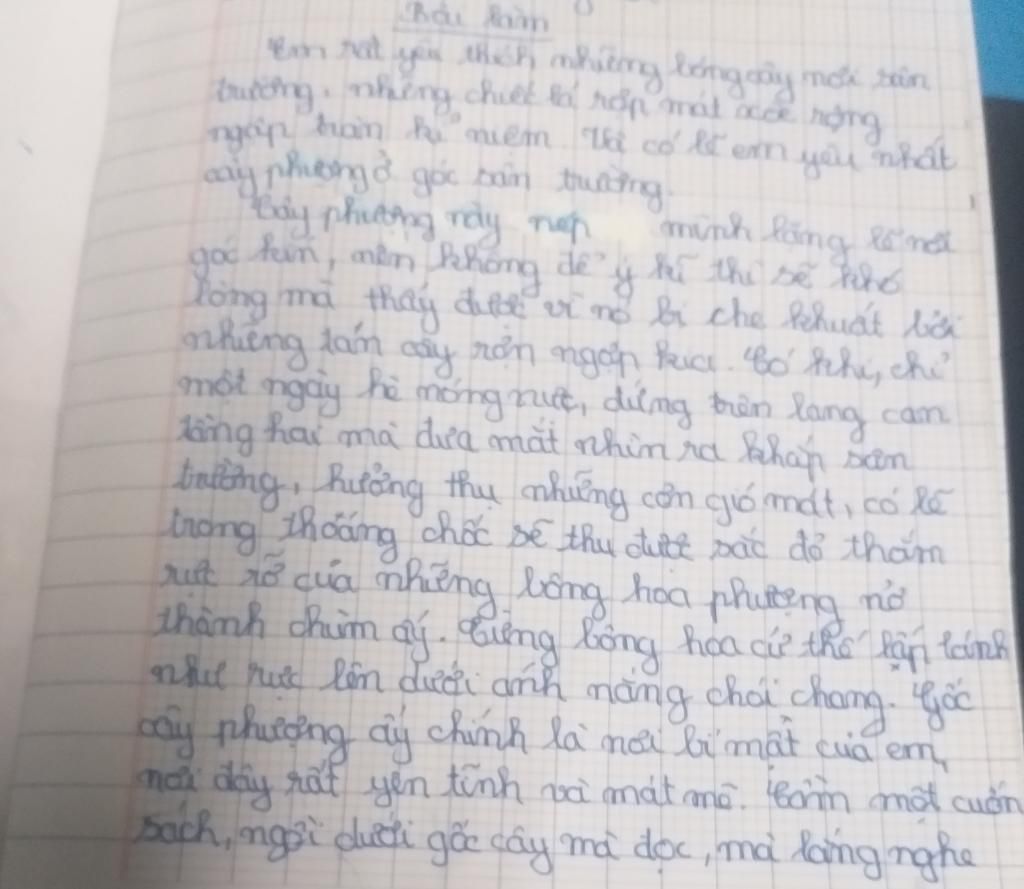 Bài làm
Em rất yêu thích những bóng cây nơi sân
trường, những chiếc lá rợp mát xoè rộng
ngập tràn kỉ niệm. Và có lẽ em yêu nhất
cây phượng ở góc sân trường.
Cây phượng này nép mình lặng lẽ nơi
góc sân, nên không để ý kĩ thì sẽ khó
lòng mà thấy được vì nó bị che khuất bởi
những tán cây rợn ngợp kia. Có khi, chỉ
một ngày hè nóng nực, đứng trên lang can
tầng hai mà đưa mắt nhìn ra khắp sân
trường, hưởng thụ những cơn gió mát, có lẽ
trong thoáng chốc sẽ thu được sắc đỏ thắm
rực rỡ của những bông hoa phượng nở
thành chùm ấy. Từng bông hoa cứ thế lấp lánh
như rực lên dưới ánh nắng chói chang. Gốc
cây phượng ấy chính là nơi bí mật của em,
nơi đây rất yên tĩnh và mát mẻ. Cầm một cuốn
sách, ngồi dưới gốc cây mà đọc, mà lắng nghe